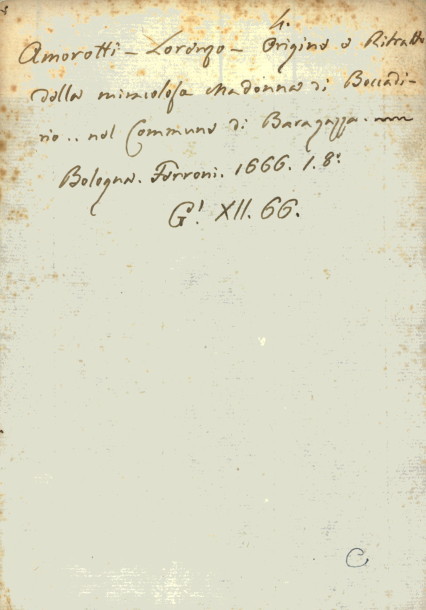 4.
Amorotti - Lorenzo - Origine e Ritratto
della miracolosa Madonna di Boccadi-
rio .. nel Commune di Baragazza.
Bologna. Ferroni. 1666. 1. 8.°
G.' XII. 66.
C